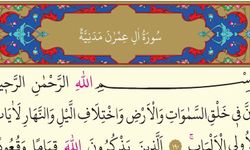 سُورَةُ اٰلِ عِمْرٰنَ مَدَنِيَّةٌ
ـسْــــمِ اللّٰهِ الرَّحْمٰنِ الرَّحٖيـ
نَّ فٖي خَلْقِ السَّمٰوَاتِ وَالْاَرْضِ وَاخْتِلَافِ الَّيْلِ وَالنَّهَارِ لَاٰيَاتٍ
ولِي الْاَلْبَابِۚ ١٩٠ اَلَّذٖينَ يَذْكُرُونَ اللّٰهَ قِيَامًا وَقُعُودًا